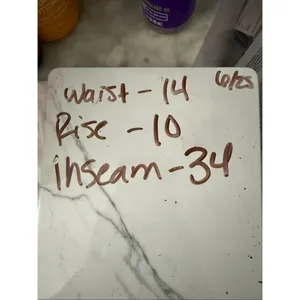 Waist - 14 6/25
Rise - 10
inseam - 34